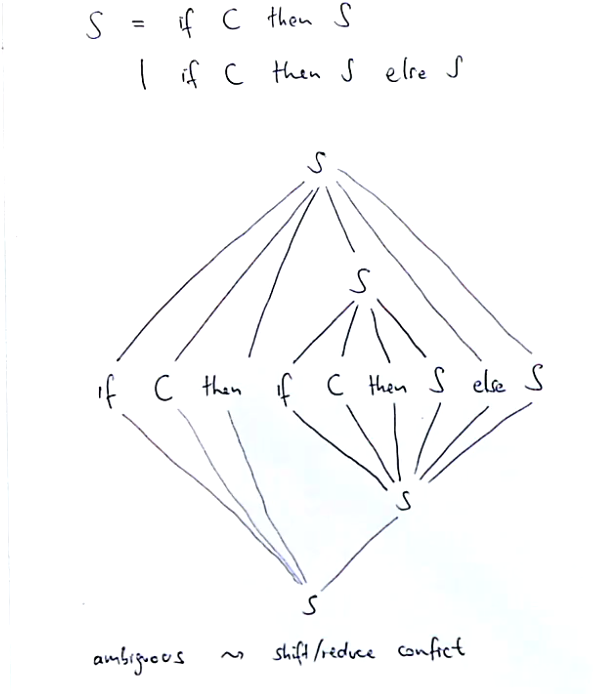 S = if C then S
| if C then S else S
S
S
if C then if C then S else S
S
S
ambiguous ~> shift/reduce confict